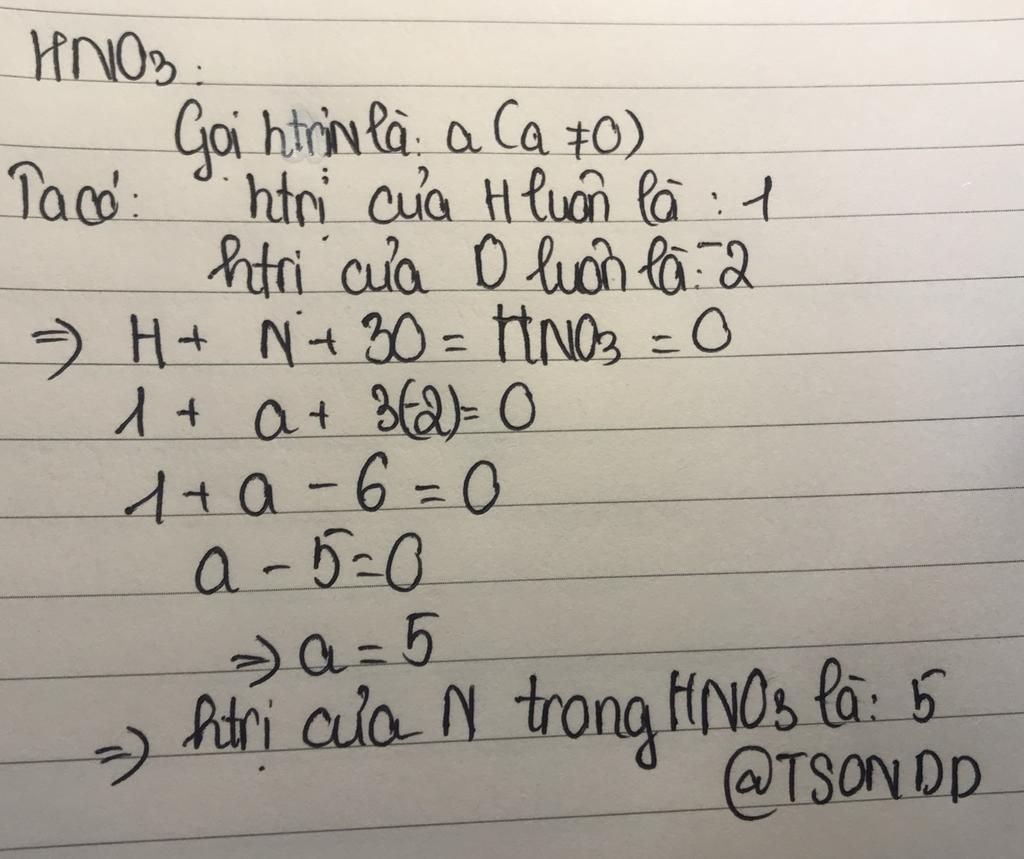 HNO3:
Gọi htrịN là: a (a ≠0)
Ta có: htrị của H luôn là : 1
htrị của O luôn là: -2
=> H + N + 3O = HNO3 = 0
1 + a + 3(-2)= 0
1 + a - 6 = 0
a - 5 = 0
=> a = 5
=> htrị của N trong HNO3 là: 5
@TSONDD